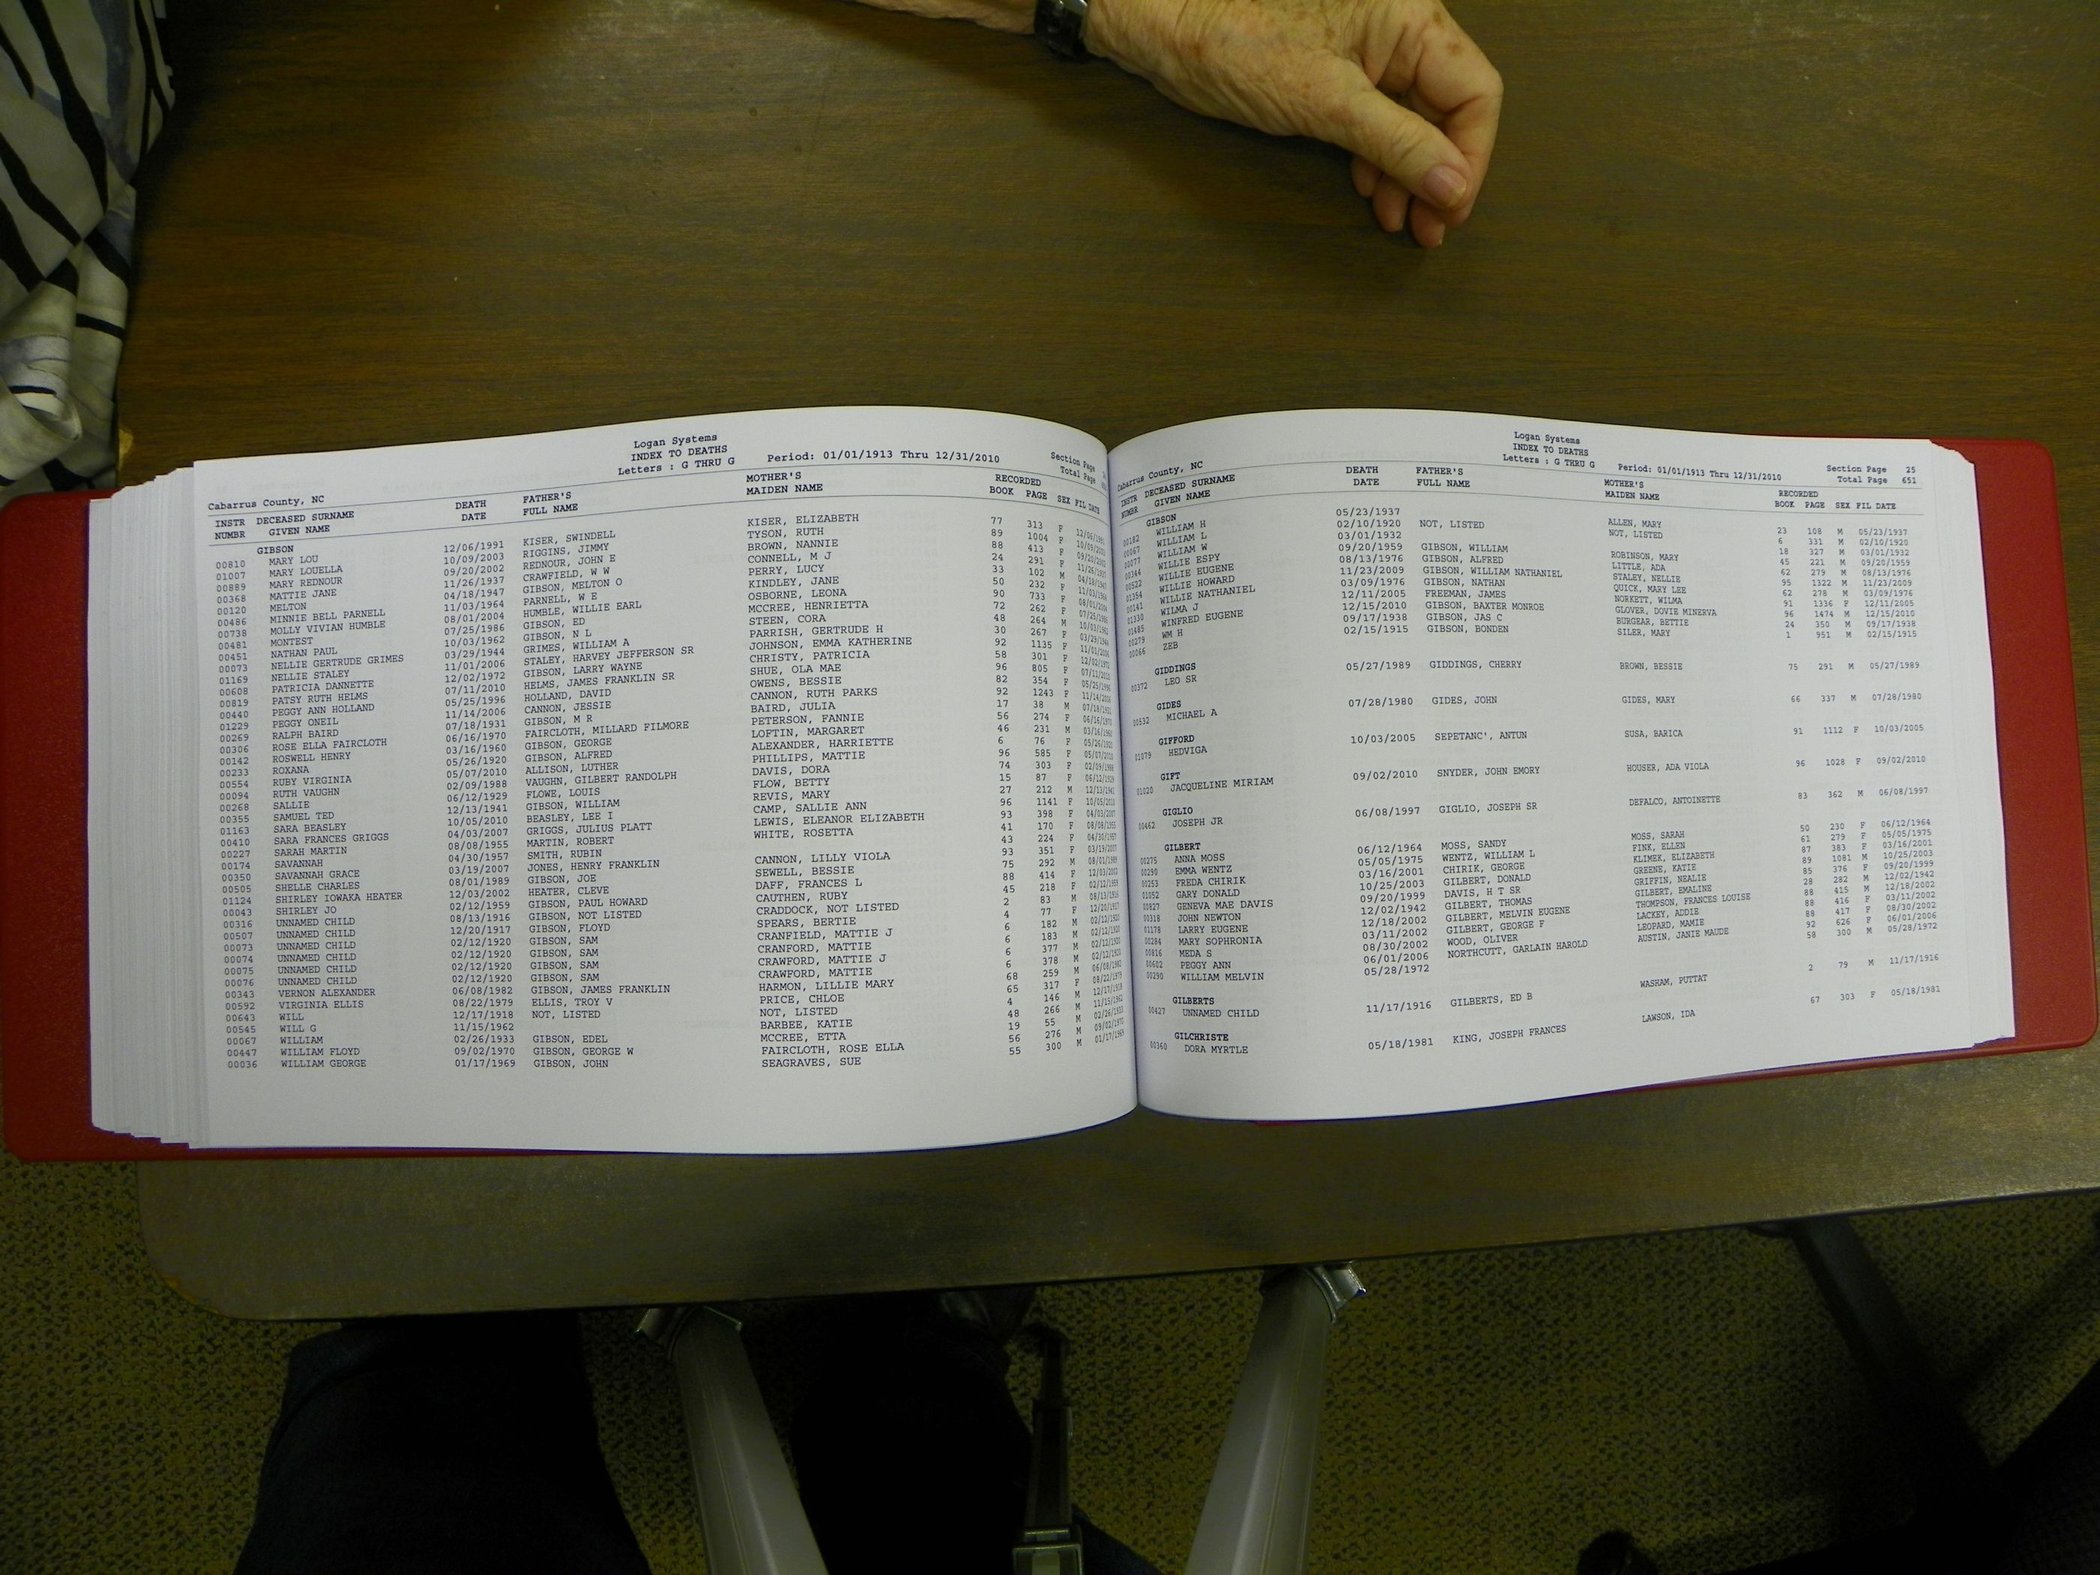 Logan Systems
INDEX TO DEATHS
Letters : G THRU G Period: 01/01/1913 Thru 12/31/2010 Section Page
Total Page
Cabarrus County, NC
INSTR DECEASED SURNAME DEATH FATHER'S MOTHER'S RECORDED
NUMBR GIVEN NAME DATE FULL NAME MAIDEN NAME BOOK PAGE SEX FIL DATE
GIBSON
00810 MARY LOU 12/06/1991 KISER, SWINDELL KISER, ELIZABETH 77 313 F 12/06/1991
01007 MARY LOUELLA 10/09/2003 RIGGINS, JIMMY TYSON, RUTH 89 1004 F 10/09/2003
00889 MARY REDNOUR 09/20/2002 REDNOUR, JOHN E BROWN, NANNIE 88 413 F 09/20/2002
00368 MATTIE JANE 11/26/1937 CRAWFIELD, W W CONNELL, M J 24 291 F 11/26/1937
00120 MELTON 04/18/1947 GIBSON, MELTON O PERRY, LUCY 33 102 M 04/18/1947
00486 MINNIE BELL PARNELL 11/03/1964 PARNELL, W E KINDLEY, JANE 50 232 F 11/03/1964
00738 MOLLY VIVIAN HUMBLE 08/01/2004 HUMBLE, WILLIE EARL OSBORNE, LEONA 90 733 F 08/01/2004
00481 MONTEST 07/25/1986 GIBSON, ED MCCREE, HENRIETTA 72 262 F 07/25/1986
00451 NATHAN PAUL 10/03/1962 GIBSON, N L STEEN, CORA 48 264 M 10/03/1962
00073 NELLIE GERTRUDE GRIMES 03/29/1944 GRIMES, WILLIAM A PARRISH, GERTRUDE H 30 267 F 03/29/1944
01169 NELLIE STALEY 11/01/2006 STALEY, HARVEY JEFFERSON SR JOHNSON, EMMA KATHERINE 92 1135 F 11/01/2006
00608 PATRICIA DANNETTE 12/02/1972 GIBSON, LARRY WAYNE CHRISTY, PATRICIA 58 301 F 12/02/1972
00819 PATSY RUTH HELMS 07/11/2010 HELMS, JAMES FRANKLIN SR SHUE, OLA MAE 96 805 F 07/11/2010
00440 PEGGY ANN HOLLAND 05/25/1996 HOLLAND, DAVID OWENS, BESSIE 82 354 F 05/25/1996
01229 PEGGY ONEIL 11/14/2006 CANNON, JESSIE CANNON, RUTH PARKS 92 1243 F 11/14/2006
00269 RALPH BAIRD 07/18/1931 GIBSON, M R BAIRD, JULIA 17 38 M 07/18/1931
00306 ROSE ELLA FAIRCLOTH 06/16/1970 FAIRCLOTH, MILLARD FILMORE PETERSON, FANNIE 56 274 F 06/16/1970
00142 ROSWELL HENRY 03/16/1960 GIBSON, GEORGE LOFTIN, MARGARET 46 231 M 03/16/1960
00233 ROXANA 05/26/1920 GIBSON, ALFRED ALEXANDER, HARRIETTE 6 76 F 05/26/1920
00554 RUBY VIRGINIA 05/07/2010 ALLISON, LUTHER PHILLIPS, MATTIE 96 585 F 05/07/2010
00094 RUTH VAUGHN 02/09/1988 VAUGHN, GILBERT RANDOLPH DAVIS, DORA 74 303 F 02/09/1988
00268 SALLIE 06/12/1929 FLOWE, LOUIS FLOW, BETTY 15 87 F 06/12/1929
00355 SAMUEL TED 12/13/1941 GIBSON, WILLIAM REVIS, MARY 27 212 M 12/13/1941
01163 SARA BEASLEY 10/05/2010 BEASLEY, LEE I CAMP, SALLIE ANN 96 1141 F 10/05/2010
00410 SARA FRANCES GRIGGS 04/03/2007 GRIGGS, JULIUS PLATT LEWIS, ELEANOR ELIZABETH 93 398 F 04/03/2007
00227 SARAH MARTIN 08/08/1955 MARTIN, ROBERT WHITE, ROSETTA 41 170 F 08/08/1955
00174 SAVANNAH 04/30/1957 SMITH, RUBIN 43 224 F 04/30/1957
00350 SAVANNAH GRACE 03/19/2007 JONES, HENRY FRANKLIN CANNON, LILLY VIOLA 93 351 F 03/19/2007
00505 SHELLE CHARLES 08/01/1989 GIBSON, JOE SEWELL, BESSIE 75 292 M 08/01/1989
01124 SHIRLEY IOWAKA HEATER 12/03/2002 HEATER, CLEVE DAFF, FRANCES L 88 414 F 12/03/2002
00043 SHIRLEY JO 02/12/1959 GIBSON, PAUL HOWARD CAUTHEN, RUBY 45 218 F 02/12/1959
00316 UNNAMED CHILD 08/13/1916 GIBSON, NOT LISTED CRADDOCK, NOT LISTED 2 83 M 08/13/1916
00507 UNNAMED CHILD 12/20/1917 GIBSON, FLOYD SPEARS, BERTIE 4 77 F 12/20/1917
00073 UNNAMED CHILD 02/12/1920 GIBSON, SAM CRANFIELD, MATTIE J 6 182 M 02/12/1920
00074 UNNAMED CHILD 02/12/1920 GIBSON, SAM CRANFORD, MATTIE 6 183 M 02/12/1920
00075 UNNAMED CHILD 02/12/1920 GIBSON, SAM CRAWFORD, MATTIE J 6 377 M 02/12/1920
00076 UNNAMED CHILD 02/12/1920 GIBSON, SAM CRAWFORD, MATTIE 6 378 M 02/12/1920
00343 VERNON ALEXANDER 06/08/1982 GIBSON, JAMES FRANKLIN HARMON, LILLIE MARY 68 259 M 06/08/1982
00592 VIRGINIA ELLIS 08/22/1979 ELLIS, TROY V PRICE, CHLOE 65 317 F 08/22/1979
00643 WILL 12/17/1918 NOT, LISTED NOT, LISTED 4 146 M 12/17/1918
00545 WILL G 11/15/1962 BARBEE, KATIE 48 266 M 11/15/1962
00067 WILLIAM 02/26/1933 GIBSON, EDEL MCCREE, ETTA 19 55 M 02/26/1933
00447 WILLIAM FLOYD 09/02/1970 GIBSON, GEORGE W FAIRCLOTH, ROSE ELLA 56 276 M 09/02/1970
00036 WILLIAM GEORGE 01/17/1969 GIBSON, JOHN SEAGRAVES, SUE 55 300 M 01/17/1969
Logan Systems
INDEX TO DEATHS
Letters : G THRU G Period: 01/01/1913 Thru 12/31/2010 Section Page 25
Total Page 651
Cabarrus County, NC
INSTR DECEASED SURNAME DEATH FATHER'S MOTHER'S RECORDED
NUMBR GIVEN NAME DATE FULL NAME MAIDEN NAME BOOK PAGE SEX FIL DATE
GIBSON
00182 WILLIAM H 05/23/1937 ALLEN, MARY 23 108 M 05/23/1937
00067 WILLIAM L 02/10/1920 NOT, LISTED NOT, LISTED 6 331 M 02/10/1920
00077 WILLIAM W 03/01/1932 18 327 M 03/01/1932
00344 WILLIE ESPY 09/20/1959 GIBSON, WILLIAM ROBINSON, MARY 45 221 M 09/20/1959
00522 WILLIE EUGENE 08/13/1976 GIBSON, ALFRED LITTLE, ADA 62 279 M 08/13/1976
01354 WILLIE HOWARD 11/23/2009 GIBSON, WILLIAM NATHANIEL STALEY, NELLIE 95 1322 M 11/23/2009
00141 WILLIE NATHANIEL 03/09/1976 GIBSON, NATHAN QUICK, MARY LEE 62 278 M 03/09/1976
01330 WILMA J 12/11/2005 FREEMAN, JAMES NORKETT, WILMA 91 1336 F 12/11/2005
01485 WINFRED EUGENE 12/15/2010 GIBSON, BAXTER MONROE GLOVER, DOVIE MINERVA 96 1474 M 12/15/2010
00279 WM H 09/17/1938 GIBSON, JAS C BURGEAR, BETTIE 24 350 M 09/17/1938
00066 ZEB 02/15/1915 GIBSON, BONDEN SILER, MARY 1 951 M 02/15/1915
GIDDINGS
00372 LEO SR 05/27/1989 GIDDINGS, CHERRY BROWN, BESSIE 75 291 M 05/27/1989
GIDES
00532 MICHAEL A 07/28/1980 GIDES, JOHN GIDES, MARY 66 337 M 07/28/1980
GIFFORD
01079 HEDVIGA 10/03/2005 SEPETANC', ANTUN SUSA, BARICA 91 1112 F 10/03/2005
GIFT
01020 JACQUELINE MIRIAM 09/02/2010 SNYDER, JOHN EMORY HOUSER, ADA VIOLA 96 1028 F 09/02/2010
GIGLIO
00462 JOSEPH JR 06/08/1997 GIGLIO, JOSEPH SR DEFALCO, ANTOINETTE 83 362 M 06/08/1997
GILBERT
00275 ANNA MOSS 06/12/1964 MOSS, SANDY MOSS, SARAH 50 230 F 06/12/1964
00290 EMMA WENTZ 05/05/1975 WENTZ, WILLIAM L FINK, ELLEN 61 279 F 05/05/1975
00253 FREDA CHIRIK 03/16/2001 CHIRIK, GEORGE KLIMEK, ELIZABETH 87 383 F 03/16/2001
01052 GARY DONALD 10/25/2003 GILBERT, DONALD GREENE, KATIE 89 1081 M 10/25/2003
00827 GENEVA MAE DAVIS 09/20/1999 DAVIS, H T SR GRIFFIN, NEALIE 85 376 F 09/20/1999
00318 JOHN NEWTON 12/02/1942 GILBERT, THOMAS GILBERT, EMALINE 28 282 M 12/02/1942
01178 LARRY EUGENE 12/18/2002 GILBERT, MELVIN EUGENE THOMPSON, FRANCES LOUISE 88 415 M 12/18/2002
00284 MARY SOPHRONIA 03/11/2002 GILBERT, GEORGE F LACKEY, ADDIE 88 416 F 03/11/2002
00816 MEDA S 08/30/2002 WOOD, OLIVER LEOPARD, MAMIE 88 417 F 08/30/2002
00602 PEGGY ANN 06/01/2006 NORTHCUTT, GARLAIN HAROLD AUSTIN, JANIE MAUDE 92 626 F 06/01/2006
00290 WILLIAM MELVIN 05/28/1972 58 300 M 05/28/1972
GILBERTS
00427 UNNAMED CHILD 11/17/1916 GILBERTS, ED B WASHAM, PUTTAT 2 79 M 11/17/1916
GILCHRISTE
00360 DORA MYRTLE 05/18/1981 KING, JOSEPH FRANCES LAWSON, IDA 67 303 F 05/18/1981